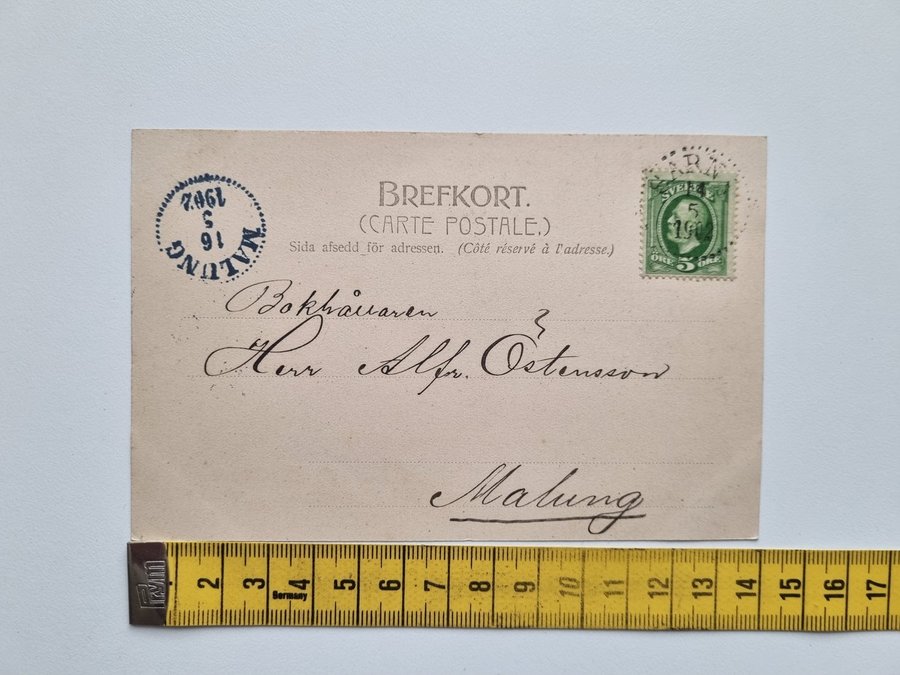 BREFKORT.
(CARTE POSTALE.)
Sida afsedd för adressen. (Côté réservé à l'adresse.)
MALUNG
16
5
1902
14
5
SVERIGE
ÖRE 5 ÖRE
Bokhållaren
Herr Alfr. Östensson
Malung
2 3 4 5 6 7 8 9 10 11 12 13 14 15 16 17
Germany